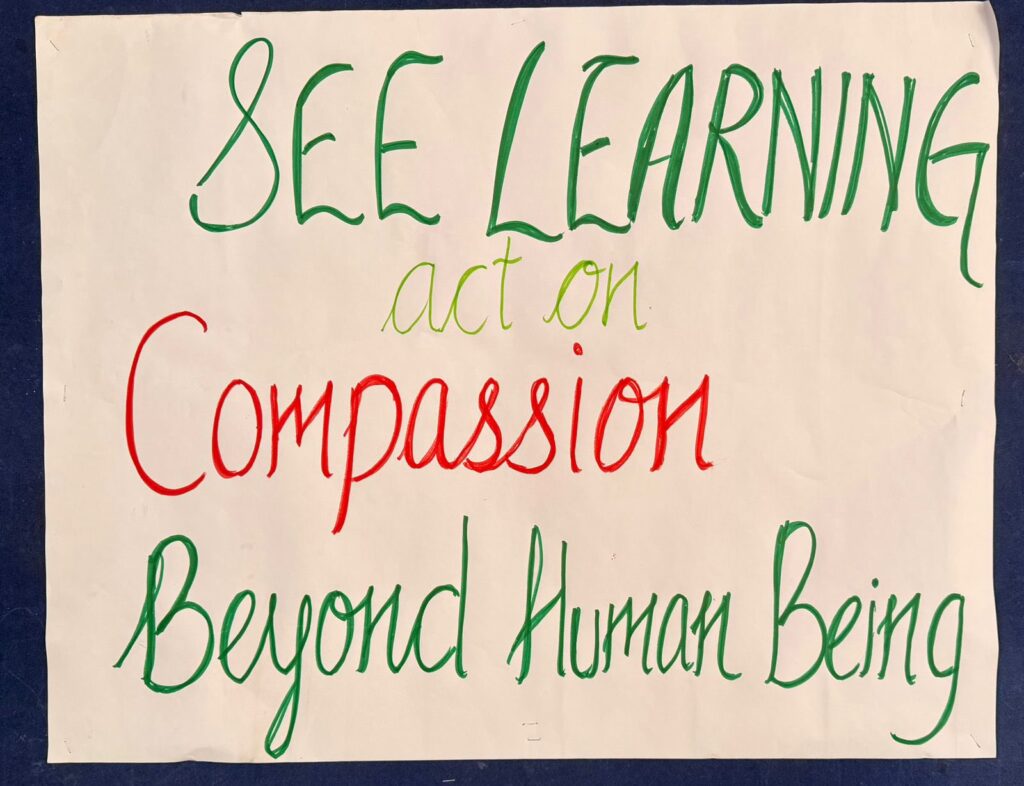 SEE LEARNING
act on
Compassion
Beyond Human Being